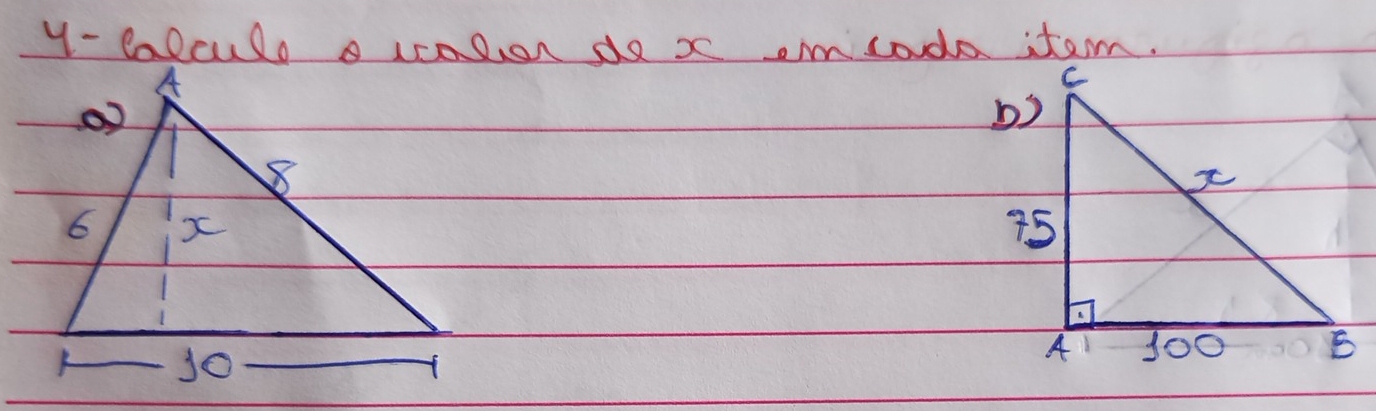 4- Calcule o valor de x em cada item.
a) A
6 x 8
10
b) C
75 x
A 100 B